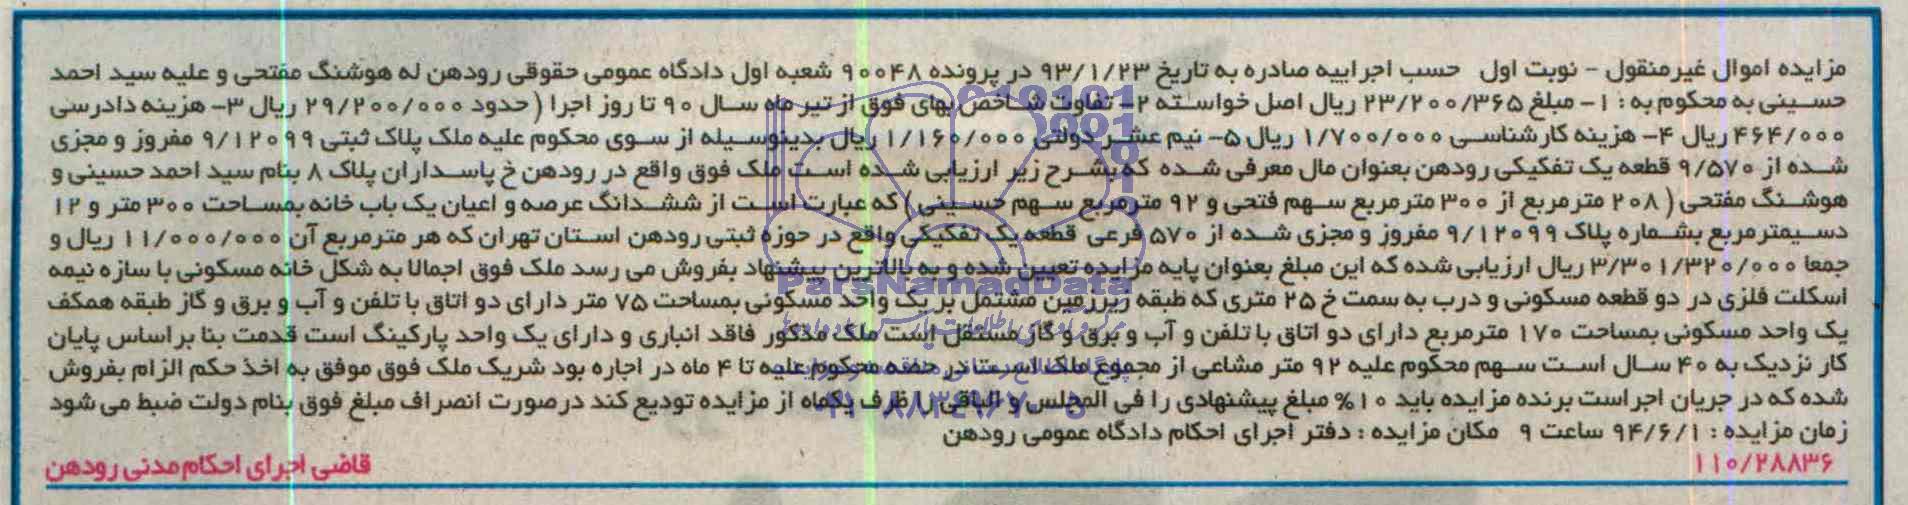 مزایده اموال غیرمنقول - نوبت اول حسب اجراییه صادره به تاریخ ۹۳/۱/۲۳ در پرونده ۹۰۰۴۸ شعبه اول دادگاه عمومی حقوقی رودهن له هوشنگ مفتحی و علیه سید احمد
حسینی به محکوم به : ۱- مبلغ ۲۳/۲۰۰/۳۶۵ ریال اصل خواسته ۲- تفاوت شاخص بهای فوق از تیر ماه سال ۹۰ تا روز اجرا (حدود ۲۹/۲۰۰/۰۰۰ ریال ۳- هزینه دادرسی
۴۶۴/۰۰۰ ریال ۴- هزینه کارشناسی ۱/۷۰۰/۰۰۰ ریال ۵- نیم عشر دولتی ۱/۱۶۰/۰۰۰ ریال بدینوسیله از سوی محکوم علیه ملک پلاک ثبتی ۹/۱۲۰۹۹ مفروز و مجزی
شده از ۹/۵۷۰ قطعه یک تفکیکی رودهن بعنوان مال معرفی شده که بشرح زیر ارزیابی شده است ملک فوق واقع در رودهن خ پاسداران پلاک ۸ بنام سید احمد حسینی و
هوشنگ مفتحی (۲۰۸ مترمربع از ۳۰۰ مترمربع سهم فتحی و ۹۲ مترمربع سهم حسینی) که عبارت است از ششدانگ عرصه و اعیان یک باب خانه بمساحت ۳۰۰ متر و ۱۲
دسیمترمربع بشماره پلاک ۹/۱۲۰۹۹ مفروز و مجزی شده از ۵۷۰ فرعی قطعه یک تفکیکی واقع در حوزه ثبتی رودهن استان تهران که هر مترمربع آن ۱۱/۰۰۰/۰۰۰ ریال و
جمعا ۳/۳۰۱/۳۲۰/۰۰۰ ریال ارزیابی شده که این مبلغ بعنوان پایه مزایده تعیین شده و به بالاترین پیشنهاد بفروش می رسد ملک فوق اجمالا به شکل خانه مسکونی با سازه نیمه
اسکلت فلزی در دو قطعه مسکونی و درب به سمت خ ۲۵ متری که طبقه زیرزمین مشتمل بر یک واحد مسکونی بمساحت ۷۵ متر دارای دو اتاق با تلفن و آب و برق و گاز طبقه همکف
یک واحد مسکونی بمساحت ۱۷۰ مترمربع دارای دو اتاق با تلفن و آب و برق و گاز مستقل است ملک مذکور فاقد انباری و دارای یک واحد پارکینگ است قدمت بنا بر اساس پایان
کار نزدیک به ۴۰ سال است سهم محکوم علیه ۹۲ متر مشاعی از مجموع ملک است در حصه محکوم علیه تا ۴ ماه در اجاره بود شریک ملک فوق موفق به اخذ حکم الزام بفروش
شده که در جریان اجراست برنده مزایده باید ۱۰% مبلغ پیشنهادی را فی المجلس و الباقی را ظرف یکماه از مزایده تودیع کند درصورت انصراف مبلغ فوق بنام دولت ضبط می شود
زمان مزایده : ۹۴/۶/۱ ساعت ۹ مکان مزایده : دفتر اجرای احکام دادگاه عمومی رودهن
۱۱۰/۲۸۸۳۶
قاضی اجرای احکام مدنی رودهن
ParsNamadData